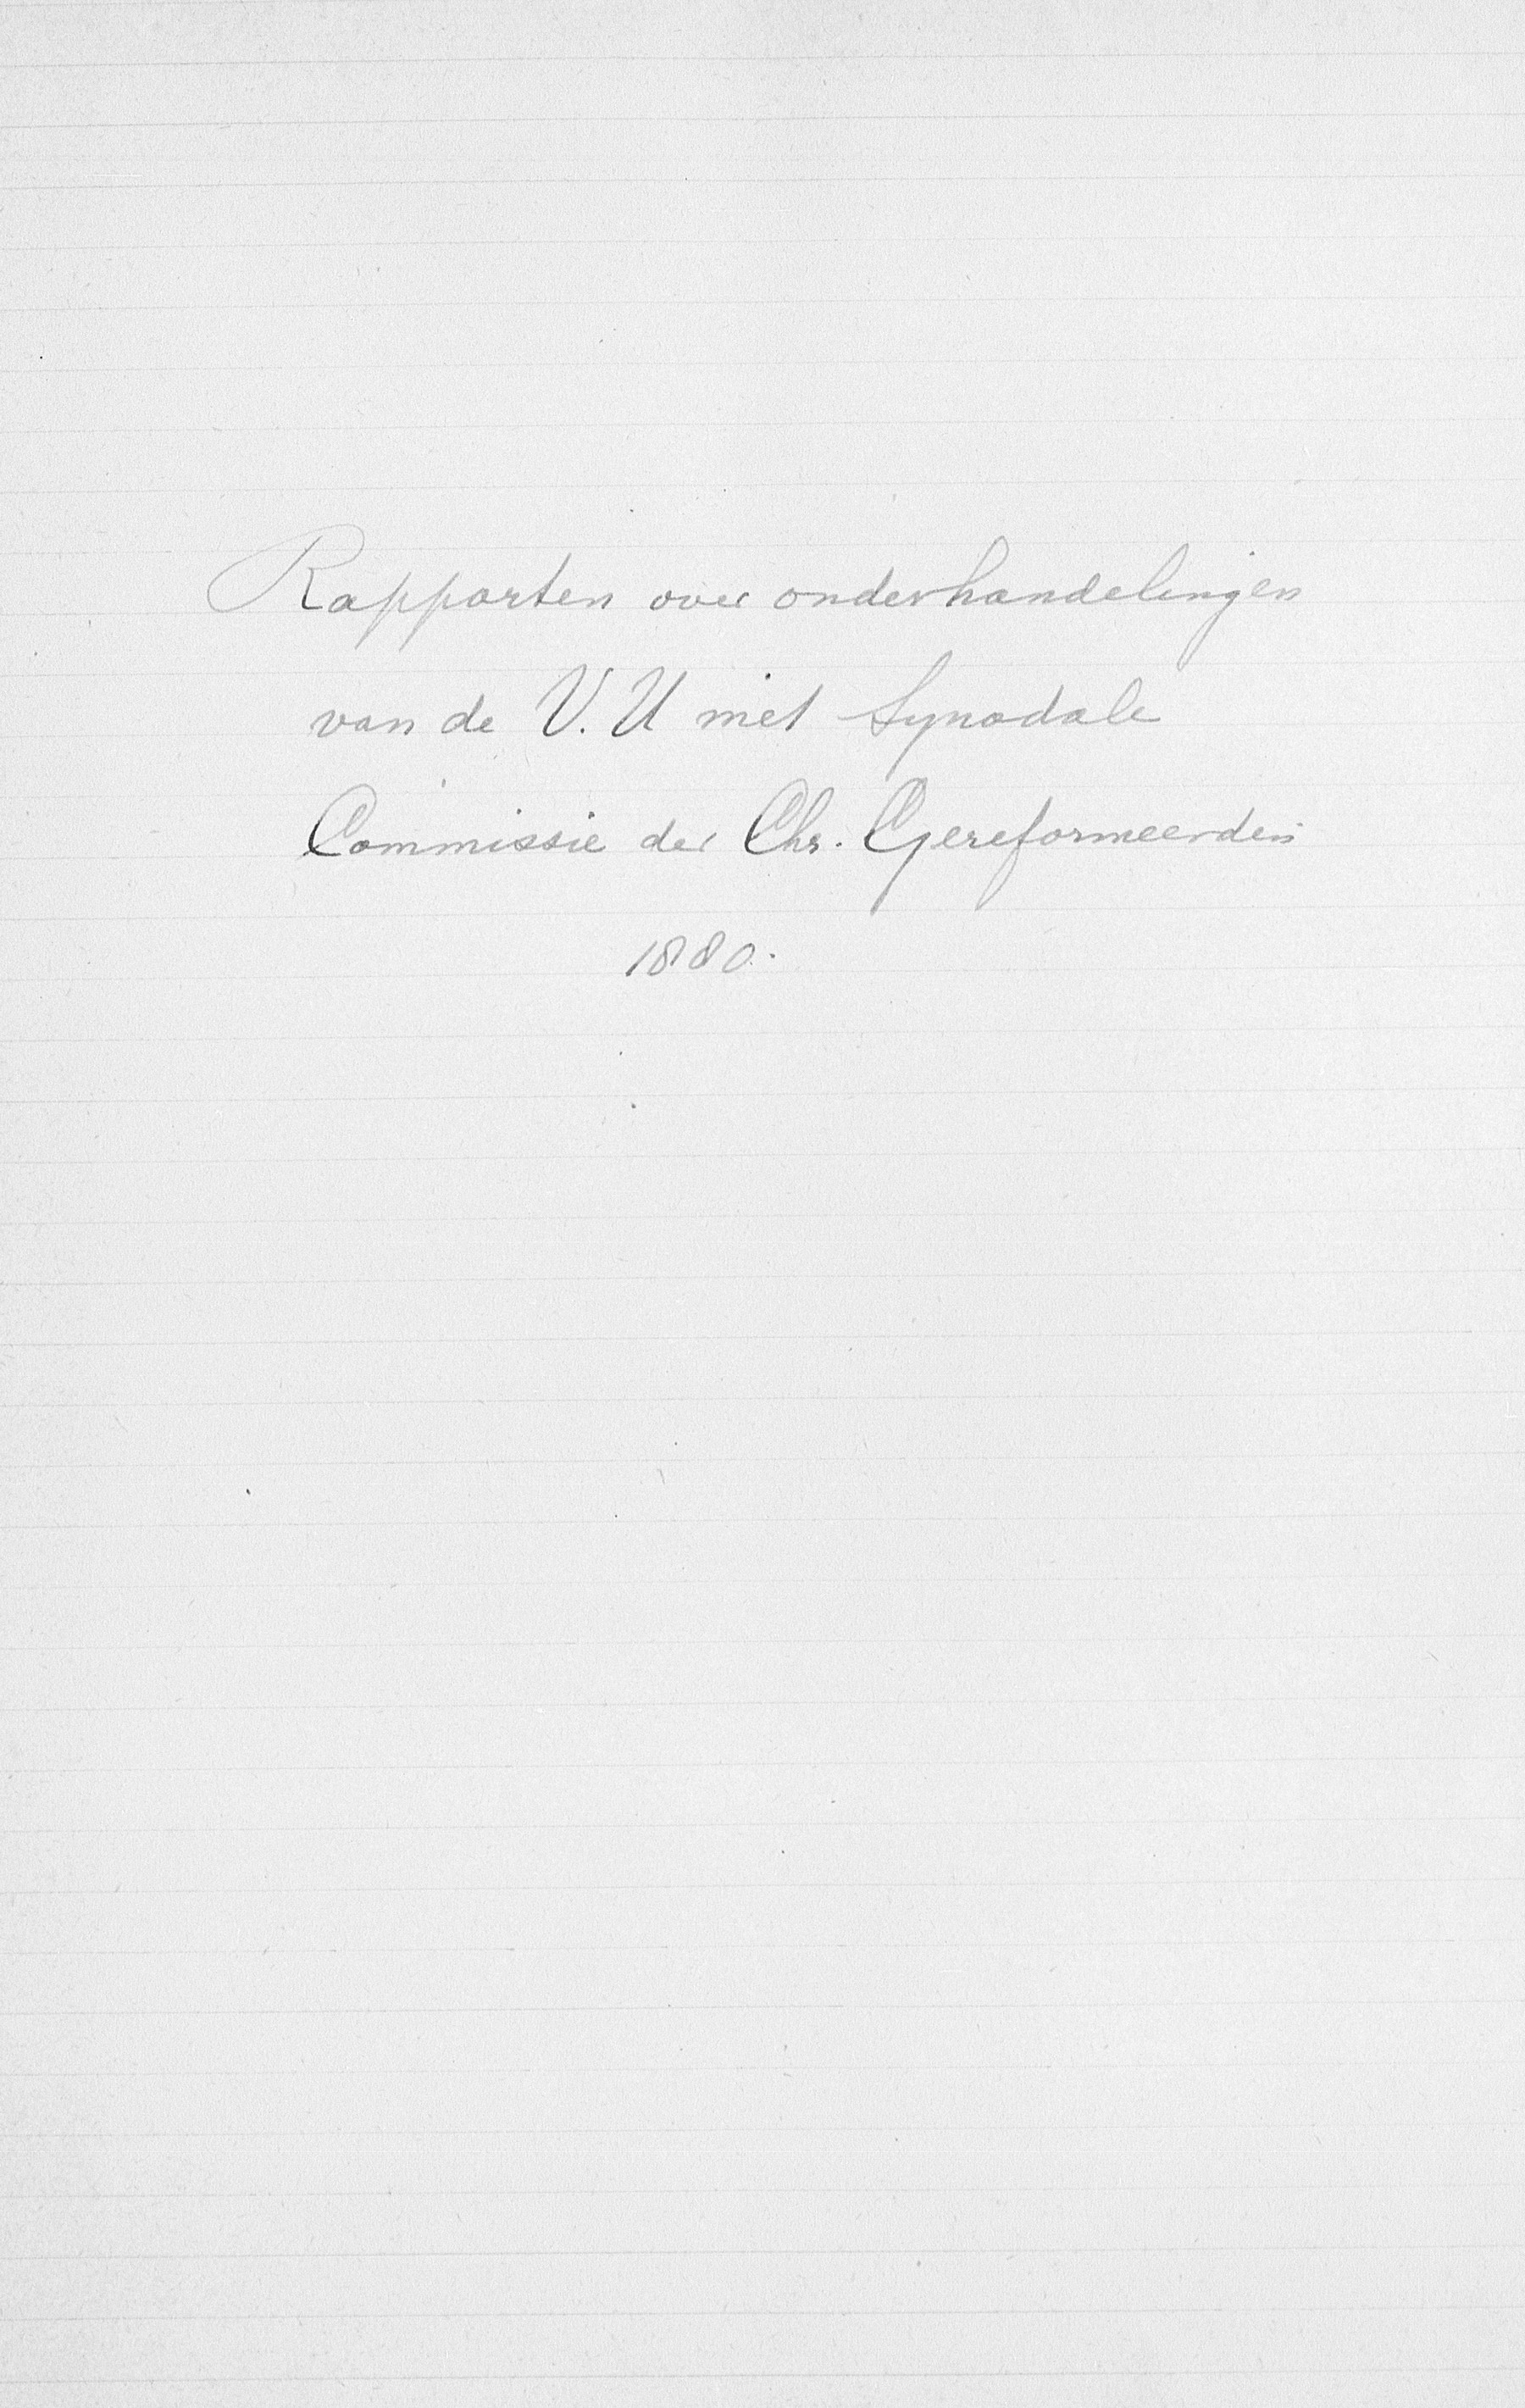 Rapporten over onderhandelingen
van de V.U met Synodale
Commissie der Chr. Gereformeerden
1880.